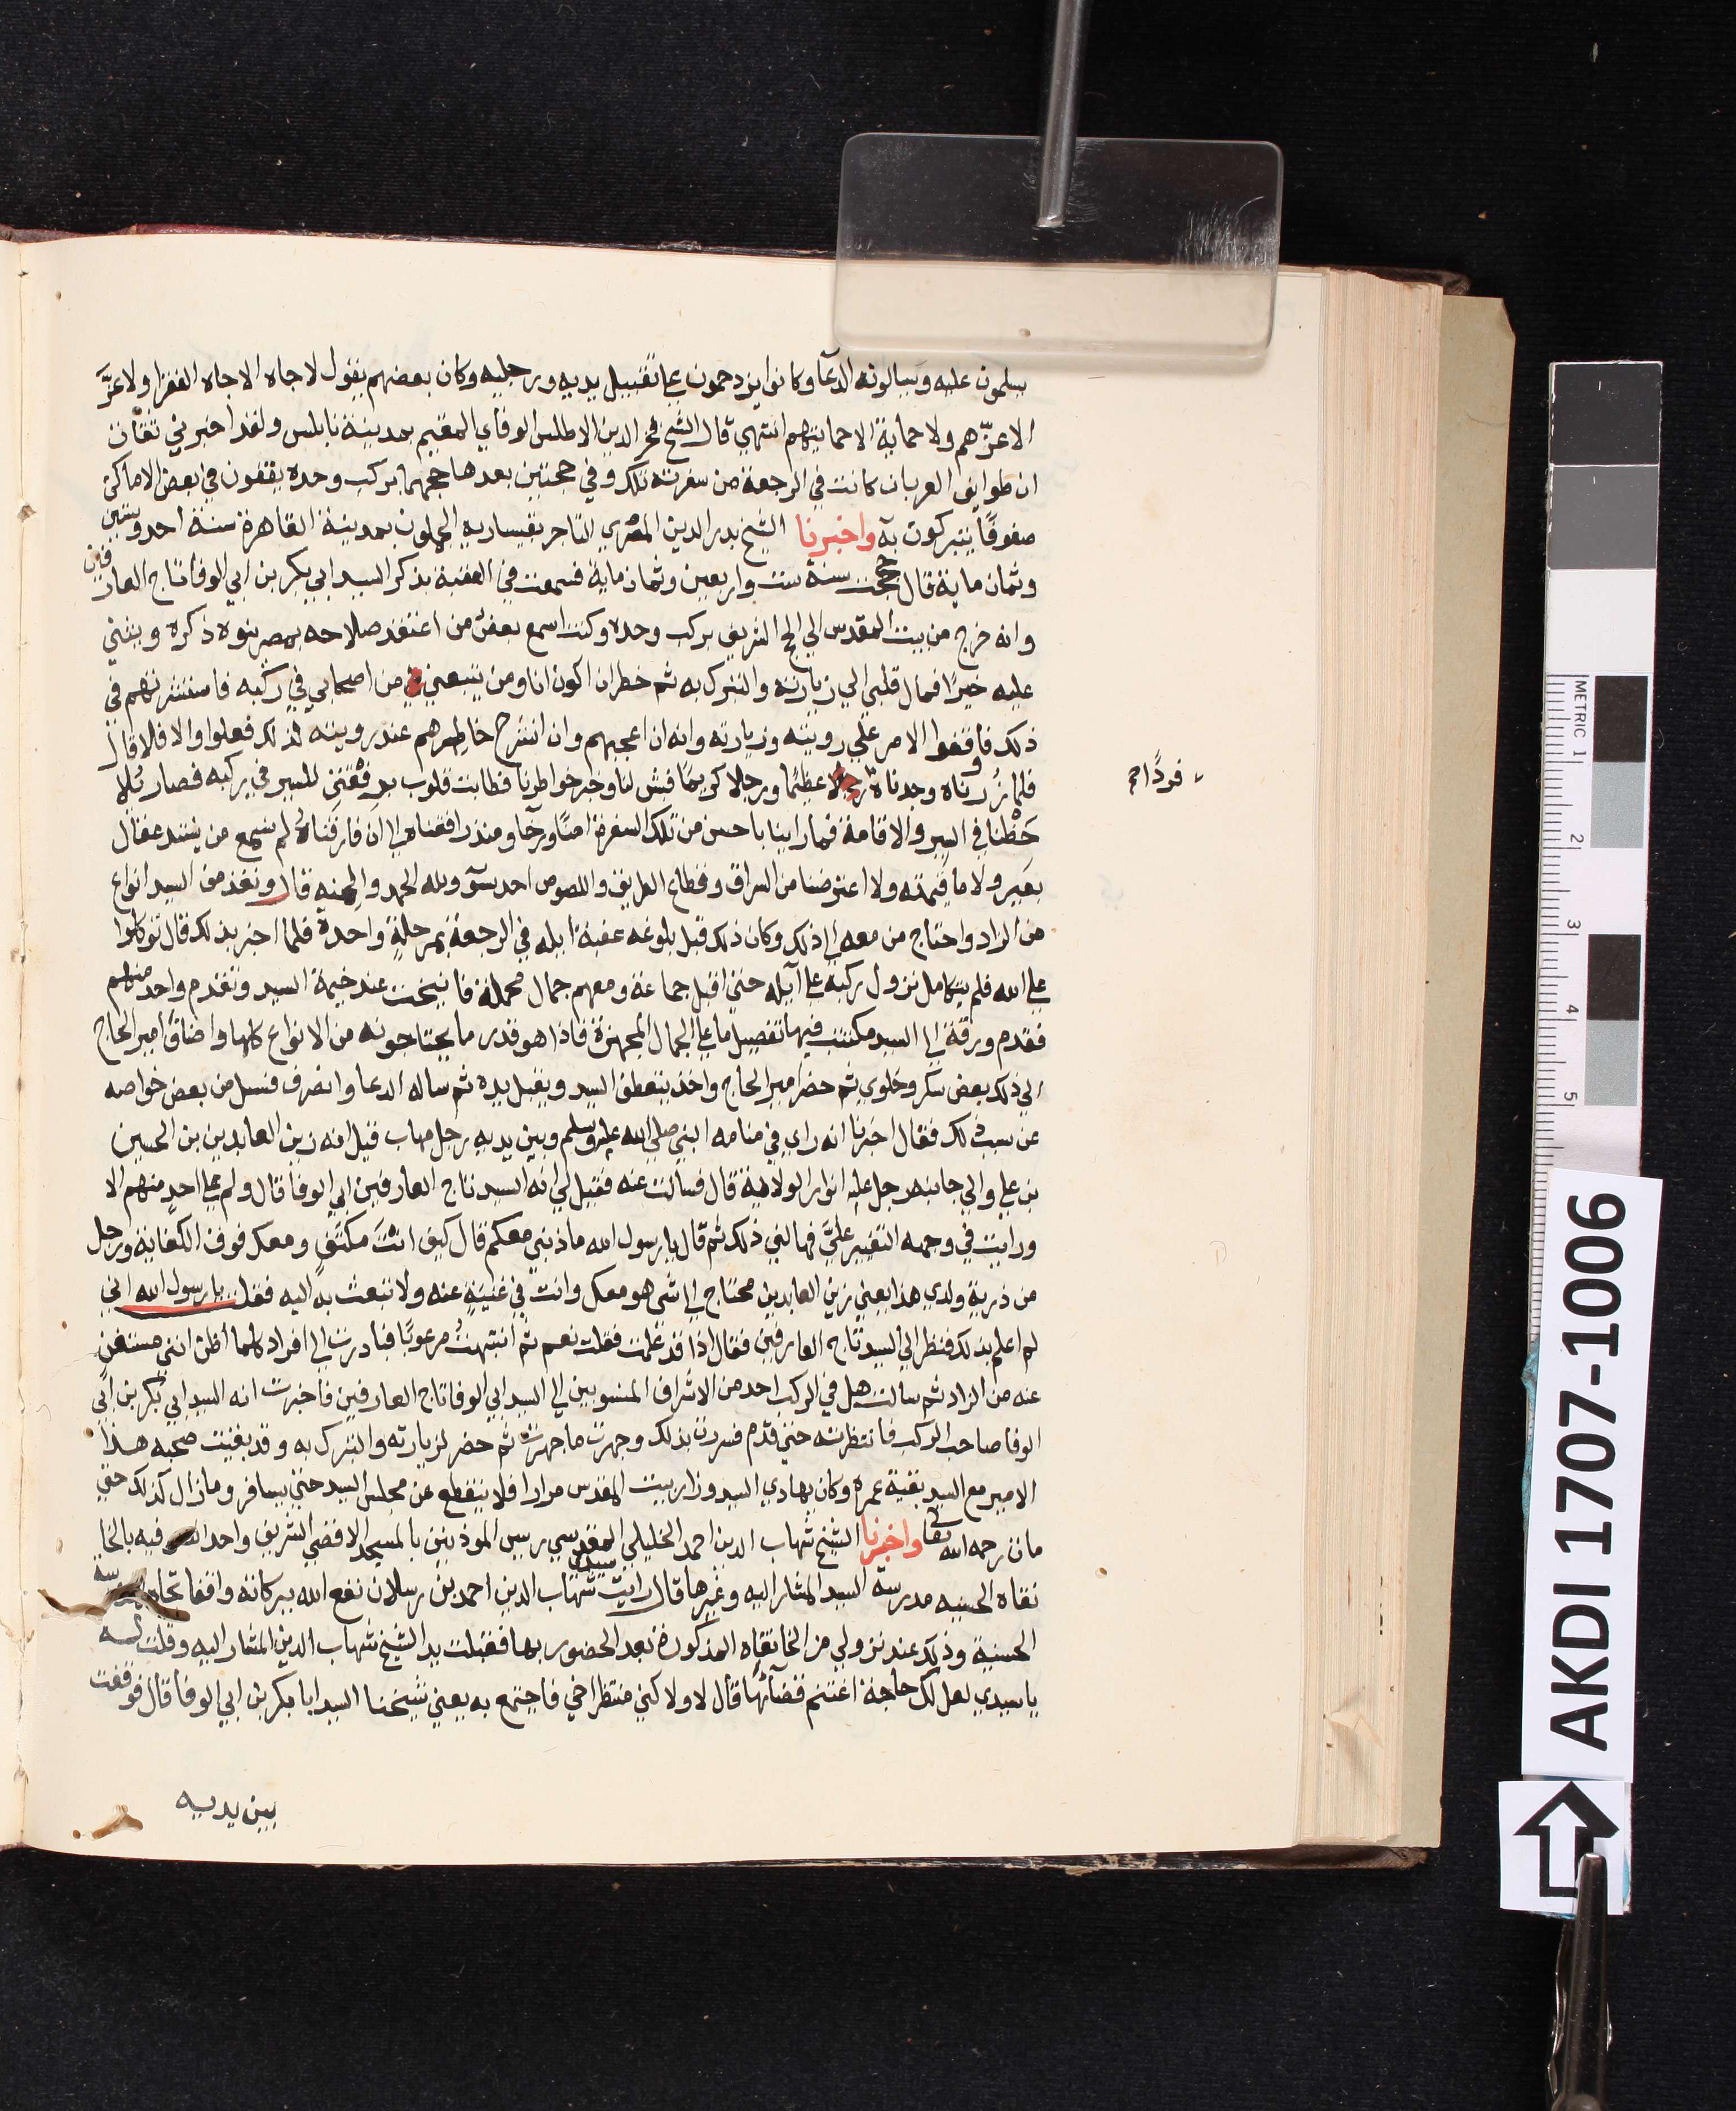 يسلمون عليه ويسالونه الدعآ وكانوا يزدحمون على تقبيل يديه ورجليه وكان بعضهم يقول لا جاه الا جاه الفقرا ولا عزّ
الا عزّهم ولا حماية الا حمايتهم انتهي قال الشيخ فخر الدين الاطلس الوفاي المقيم بمدينة نابلس ولقد اخبرني ثقات
ان طوايف العربان كانت في الرجعة من سفرته تلك وفي حجتين بعدها حجهما بركب وحده يقفون في بعض الاماكن
صفوفًا يتبركون به واخبرنا الشيخ بدر الدين المصري التاجر بقيسارية الجملون بمدينة القاهرة سنة احد وستين
وثمان ماية قال حججت سنة ست واربعين وثمان ماية فسمعت في العقبة بذكر السيد ابي بكر بن ابي الوفا تاج العارفين
وانه خرج من بيت المقدس الي الحج الشريف بركب وحده وكنت اسمع بعض من اعتقد صلاحه بمصر ينوه ذكره ويثني
عليه خيرًا فمال قلبي الي زيارته والتبرك به ثم خطر ان اكون انا ومن يتبعني من اصحابي في ركبه فاستشرتهم في
ذلك فاوقفوا الامر علي رويته وزيارته وانه ان اعجبهم وان انشرح خاطرهم عند رويته لذلك فعلوا والا فلا قال
فلما زرناه وجدناه عظيمًا ورجلا كريمًا فبش لنا وجبر خواطرنا فطابت قلوب رفقتي للسير في ركبه فصار يُلا
حَظْنا في السير والاقامة فما راينا باحسن من تلك السفرة امنًا ورخآ ومنذ رافقناه الي ان فارقناه لم نسمع من ينشد عقال
بعير ولا ما قيمته ولا اعترضنا من السراق وقطاع الطريق واللصوص احد بسوٓ ولله الحمد والمنه قال ونفذ من السيد انواع
من الزاد واحتاج من معه الي ذلك وكان ذلك قبل بلوغه عقبة ايله في الرجعة بمرحلة واحدة فلما اخبر بذلك قال توكلوا
علي الله فلم يتكامل نزول ركبه علي ايله حتي اقبل جماعة ومعهم جمال محملة فانيخت عند خيمة السيد وتقدم واحد منهم
فقدم ورقة الي السيد مكتتب فيها تفصيل ما علي الجمال المجهزة فاذا هو قدر ما يحتاجونه من الانواع كلها واضاف امير الحاج
الي ذلك بعض سكر وحلوي ثم حضر امير الحاج واخذ يتعطف السيد ويقبل يده ثم ساله الدعا وانصرف فسل من بعض خواصه
عن سبب ذلك فقال اخبرنا انه راي في منامه النبي صلي الله عليه وسلم وبين يديه رجل مهاب قيل انه زين العابدين بن الحسين
بن علي والي جانبه رجل عليه انوار الولاية قال فسالت عنه فقيل لي انه السيد تاج العارفين ابي الوفا قال ولم علي احد منهم الا
ورايت في وجهه التغيير عليَّ فهالني ذلك ثم قال يا رسول الله ما ذنبي معكم قال كيف انت مكتفٍ ومعك فوق الكفاية ورجل
من ذرية ولدي هذا يعني زين العابدين محتاج الي شي هو معك وانت في غنيةٍ عنه ولا تبعث به اليه فقلت يا رسول الله اني
لم اعلم بذلك فنظر الي السيد تاج العارفين فقال اذا قد علمت فقلت نعم ثم انتبهتُ مرعوبًا فبادرت الي افراد كلما اظن انني مستغن
عنه من الزاد ثم سالت هل في الركب احد من الاشراف المنسوبين الي السيد ابي الوفا تاج العارفين فاخبرت انه السيد ابي بكر بن ابي
الوفا صاحب الركب فانتظرته حتي قدم فسررت بذلك وجهزت ما جهزت ثم حضر لزيارته والتبرك به وقد بقيت صحبه هذا
الامير مع السيد بقية عمره وكان يهادي السيد وزار بيت المقدس مرارا فلا ينقطع عن مجلس السيد حتي يسافر وما زال كذلك حتي
مات رحمه الله تعا واخبرنا الشيخ شهاب الدين احمد الخليلي المقدسي رييس الموذنين بالمسجد الاقصي الشريف واحد فيه بالخا
نقاه الحسنيه مدرسة السيد المشار اليه وغيرها قال رايت سيدي شهاب الدين احمد بن رسلان نفع الله ببركاته واقفا تجاه
الحسنية وذلك عند نزولي من الخانقاه المذكورة بعد الحضور بها فقبلت يد الشيخ شهاب الدين المشار اليه وقلت له
يا سيدي لعل لك حاجة اغتنم قضآئها قال لا ولاكني منتظر اخي فاجتمع به يعني شيخنا السيد ابا بكر بن ابي الوفا قال فوقفت
بين يديه
فردًا